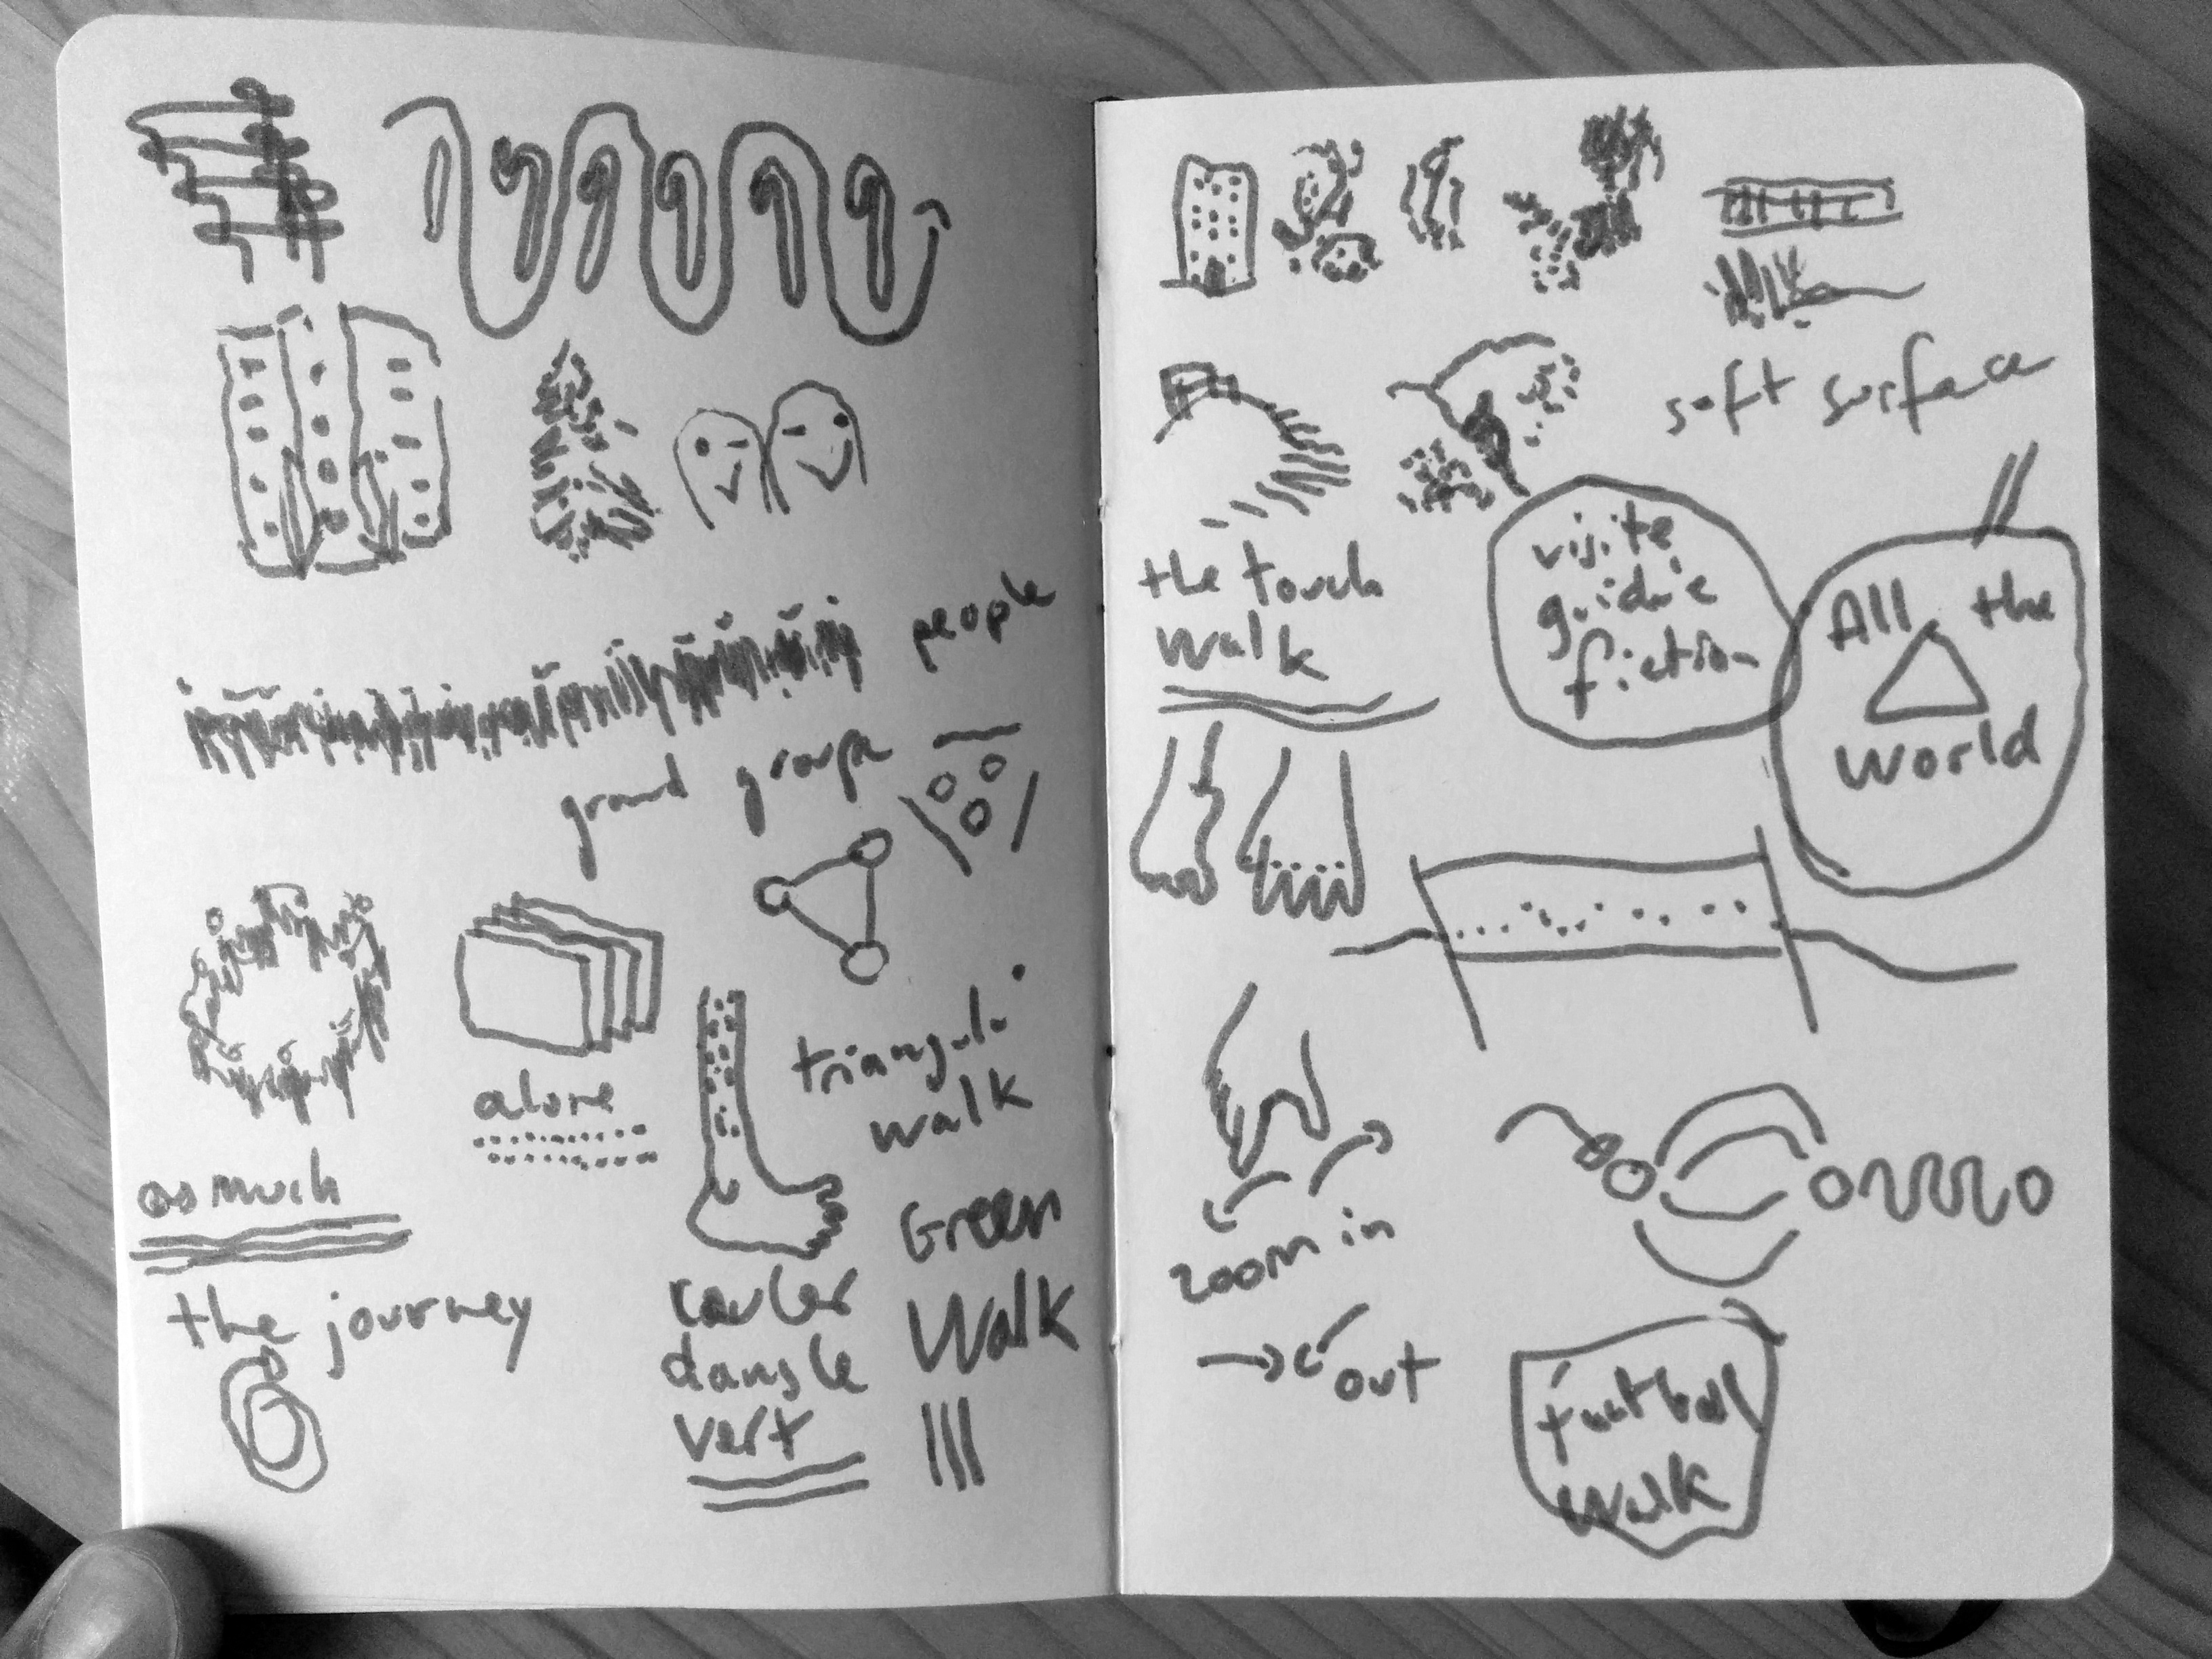 people
grand groupe
alone
triangul
walk
as much
the journey
Green
Walk
dans le
vert
soft surface
the touch
walk
visite
guidée
fiction
All the
World
zoom in
out
football
walk